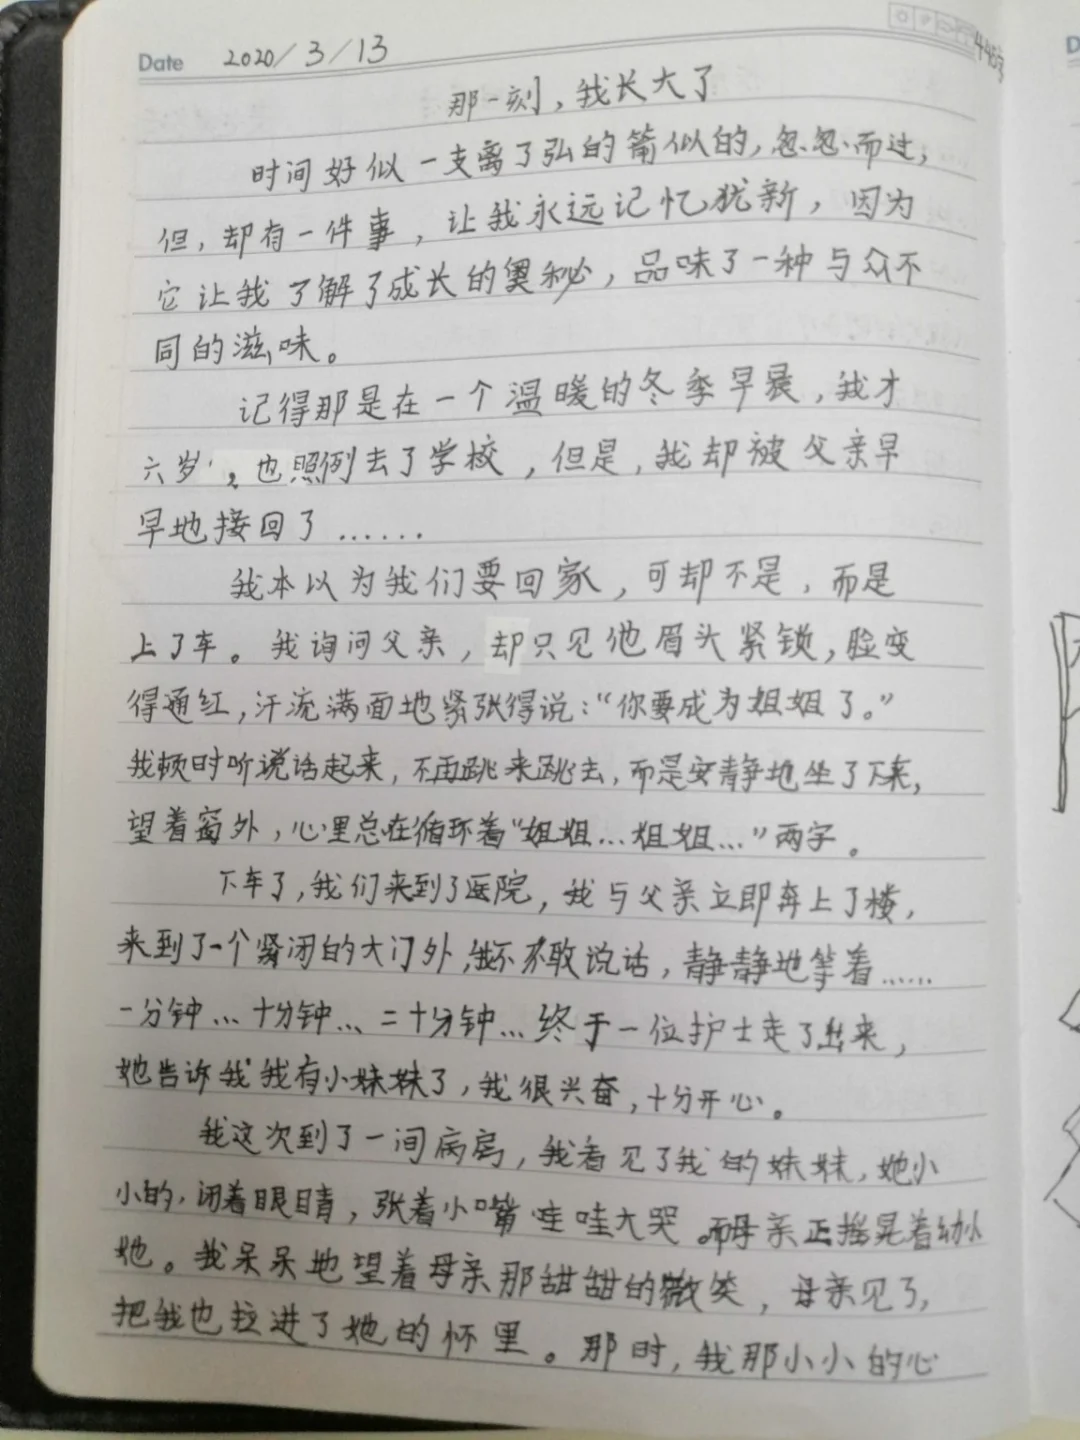 Date 2020/3/13
那一刻，我长大了
时间好似一支离了弘的箭似的，忽忽而过，
但，却有一件事，让我永远记忆犹新，因为
它让我了解了成长的奥秘，品味了一种与众不
同的滋味。
记得那是在一个温暖的冬季早晨，我才
六岁，也照例去了学校，但是，我却被父亲早
早地接回了……
我本以为我们要回家，可却不是，而是
上了车。我询问父亲，却只见他眉头紧锁，脸变
得通红，汗流满面地紧张得说：“你要成为姐姐了。”
我顿时听说话起来，不再跳来跳去，而是安静地坐了下来，
望着窗外，心里总在循环着“姐姐…姐姐…”两字。
下车了，我们来到了医院，我与父亲立即奔上了楼，
来到了一个紧闭的大门外，我不敢说话，静静地等着……
一分钟…十分钟…二十分钟…终于一位护士走了出来，
她告诉我我有小妹妹了，我很兴奋，十分开心。
我这次到了一间病房，我看见了我的妹妹，她小
小的，闭着眼睛，张着小嘴哇哇大哭。而母亲正摇晃着幼小
她。我呆呆地望着母亲那甜甜的微笑，母亲见了，
把我也拉进了她的怀里。那时，我那小小的心